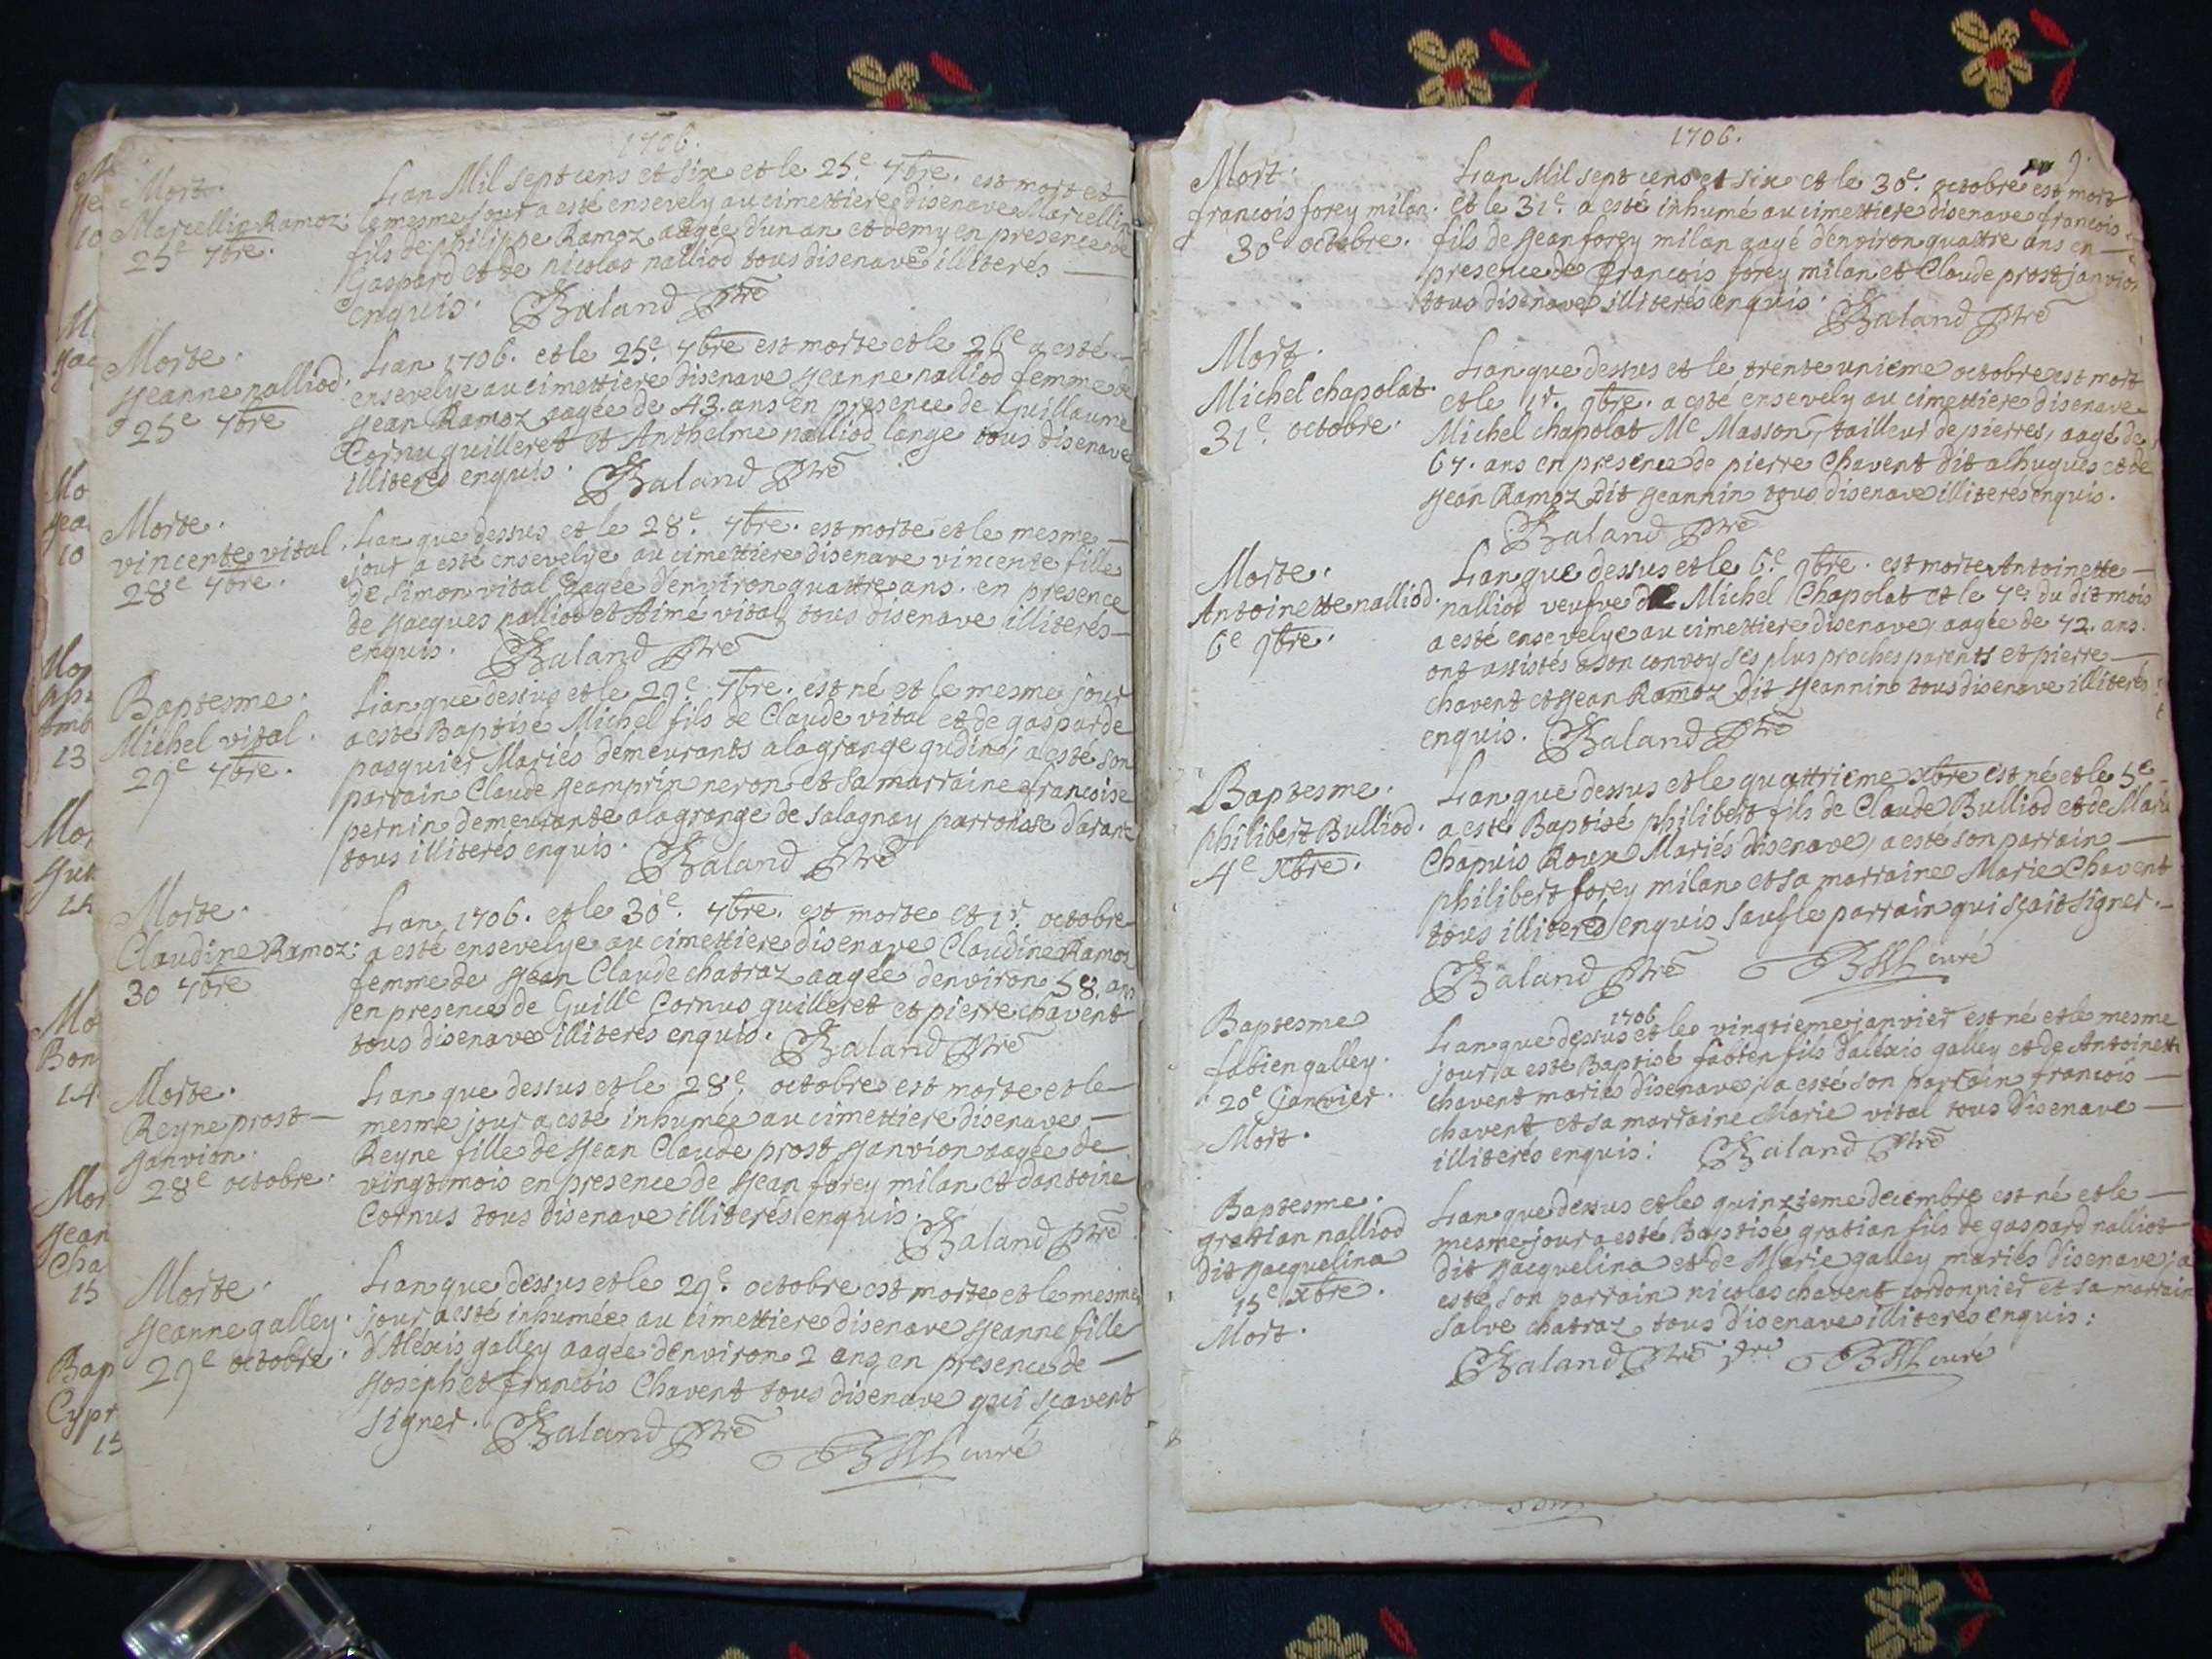 1706.
Mort.
Marcellin Ramoz:
25e 7bre.
Lan Mil sept cens et six et le 25e. 7bre. est mort et
le mesme jour a esté ensevely au cimettiere disenave Marcellin
fils de philippe Ramoz aagée d'un an et demy en presence de
Gaspard et de nicolas nalliod tous disenave illiterés
enquis. Baland ptre
Morte.
Jeanne nalliod.
25e 7bre
Lan 1706. et le 25e. 7bre est morte et le 26e a esté
ensevelye au cimettiere disenave Jeanne nalliod femme de
Jean Ramoz aagée de 43. ans en presence de Guillaume
Cornu quilleret et Anthelme nalliod lange tous disenave
illiterés enquis. Baland ptre
Morte.
vincente vital.
28e 7bre.
Lan que dessus et le 28e. 7bre. est morte et le mesme
jour a esté ensevelye au cimettiere disenave vincente fille
de Simon vital aagée denviron quattre ans. en presence
de Jacques nalliod et Aimé vital tous disenave illiterés
enquis. Baland ptre
Baptesme.
Michel vital.
29e 7bre.
Lan que dessus et le 29e. 7bre. est né et le mesme jour
a esté Baptisé Michel fils de Claude vital et de gasparde
pasquier Mariés demeurants a la grange gudin, a esté son
parrain Claude Jeamprin neron et sa marraine francoise
pernin demeurante a la grange de salagnay parroisse d'arane
tous illiterés enquis. Baland ptre
Morte.
Claudine Ramoz:
30 7bre
Lan 1706. et le 30e. 7bre. est morte et 1r. octobre
a esté ensevelye au cimettiere disenave Claudine Ramoz
femme de Jean Claude chatraz aagée denviron 58. ans
en presence de Guille Cornus quilleret et pierre chavent
tous disenave illiterés enquis. Baland ptre
Morte.
Reyne prost
Janvion.
28e octobre.
Lan que dessus et le 28e. octobre est morte et le
mesme jour a esté inhumée au cimettiere disenave
Reyne fille de Jean Claude prost Janvion aagée de
vingt mois en presence de Jean forey milan et dantoine
Cornus tous disenave illiterés enquis.
Baland ptre
Morte.
Jeanne galley.
29e octobre.
Lan que dessus et le 29e. octobre est morte et le mesme
jour a esté inhumée au cimettiere disenave Jeanne fille
d'Aléxis galley aagée denviron 2 ans en presence de
Joseph et francois Chavent tous disenave qui scavent
signer. Baland ptre
curé
1706.
9.
Mort.
francois forey milan.
30e octobre.
Lan Mil sept cens et six et le 30e. octobre est mort
et le 31e. a esté inhumé au cimettiere disenave francois
fils de Jean forey milan aagé denviron quattre ans en
presence de francois forey milan et Claude prost janvion
tous disenave illiterés enquis. Baland ptre
Mort.
Michel chapolat.
31e. octobre.
Lan que dessus et le trente unieme octobre est mort
et le 1r. 9bre. a esté ensevely au cimettiere disenave
Michel chapolat Me Masson, tailleur de pierres, aagé de
67. ans en presence de pierre Chavent dit alhugues et de
Jean Ramoz dit Jeannin tous disenave illiterés enquis.
Baland ptre
Morte.
Antoinette nalliod.
6e 9bre.
Lan que dessus et le 6e. 9bre. est morte Antoinette
nalliod veufve de Michel Chapolat et le 7e. du dit mois
a esté ensevelye au cimettiere disenave, aagée de 72. ans.
ont assistés a son convoy ses plus proches parents et pierre
chavent et Jean Ramoz dit Jeannin tous disenave illiterés
enquis. Baland ptre
Baptesme.
philibert Bulliod.
4e xbre.
Lan que dessus et le quattrieme xbre est né et le 5e
a esté Baptisé philibert fils de Claude Bulliod et de Marie
Chapuis Roux Mariés disenave, a esté son parrain
philibert forey milan et sa marraine Marie Chavent
tous illiterés enquis sauf le parrain qui sçait signer.
Baland ptre curé
Baptesme
fabien galley.
20e janvier.
Mort.
1706
Lan que dessus et le vingtieme janvier est né et le mesme
jour a esté Baptisé fabien fils d'aléxis galley et de Antoinette
chavent mariés disenave, a esté son parrain francois
chavent et sa marraine Marie vital tous disenave
illiterés enquis: Baland ptre
Baptesme.
gratian nalliod
dit Jacquelina
15e xbre.
Mort.
Lan que dessus et le quinzieme decembre est né et le
mesme jour a esté Baptisé gratian fils de gaspard nalliot
dit Jacquelina et de Marie galley mariés disenave, a
esté son parrain nicolas chavent cordonnier et sa marraine
Salve chatraz tous disenave illiterés enquis:
Baland ptre curé